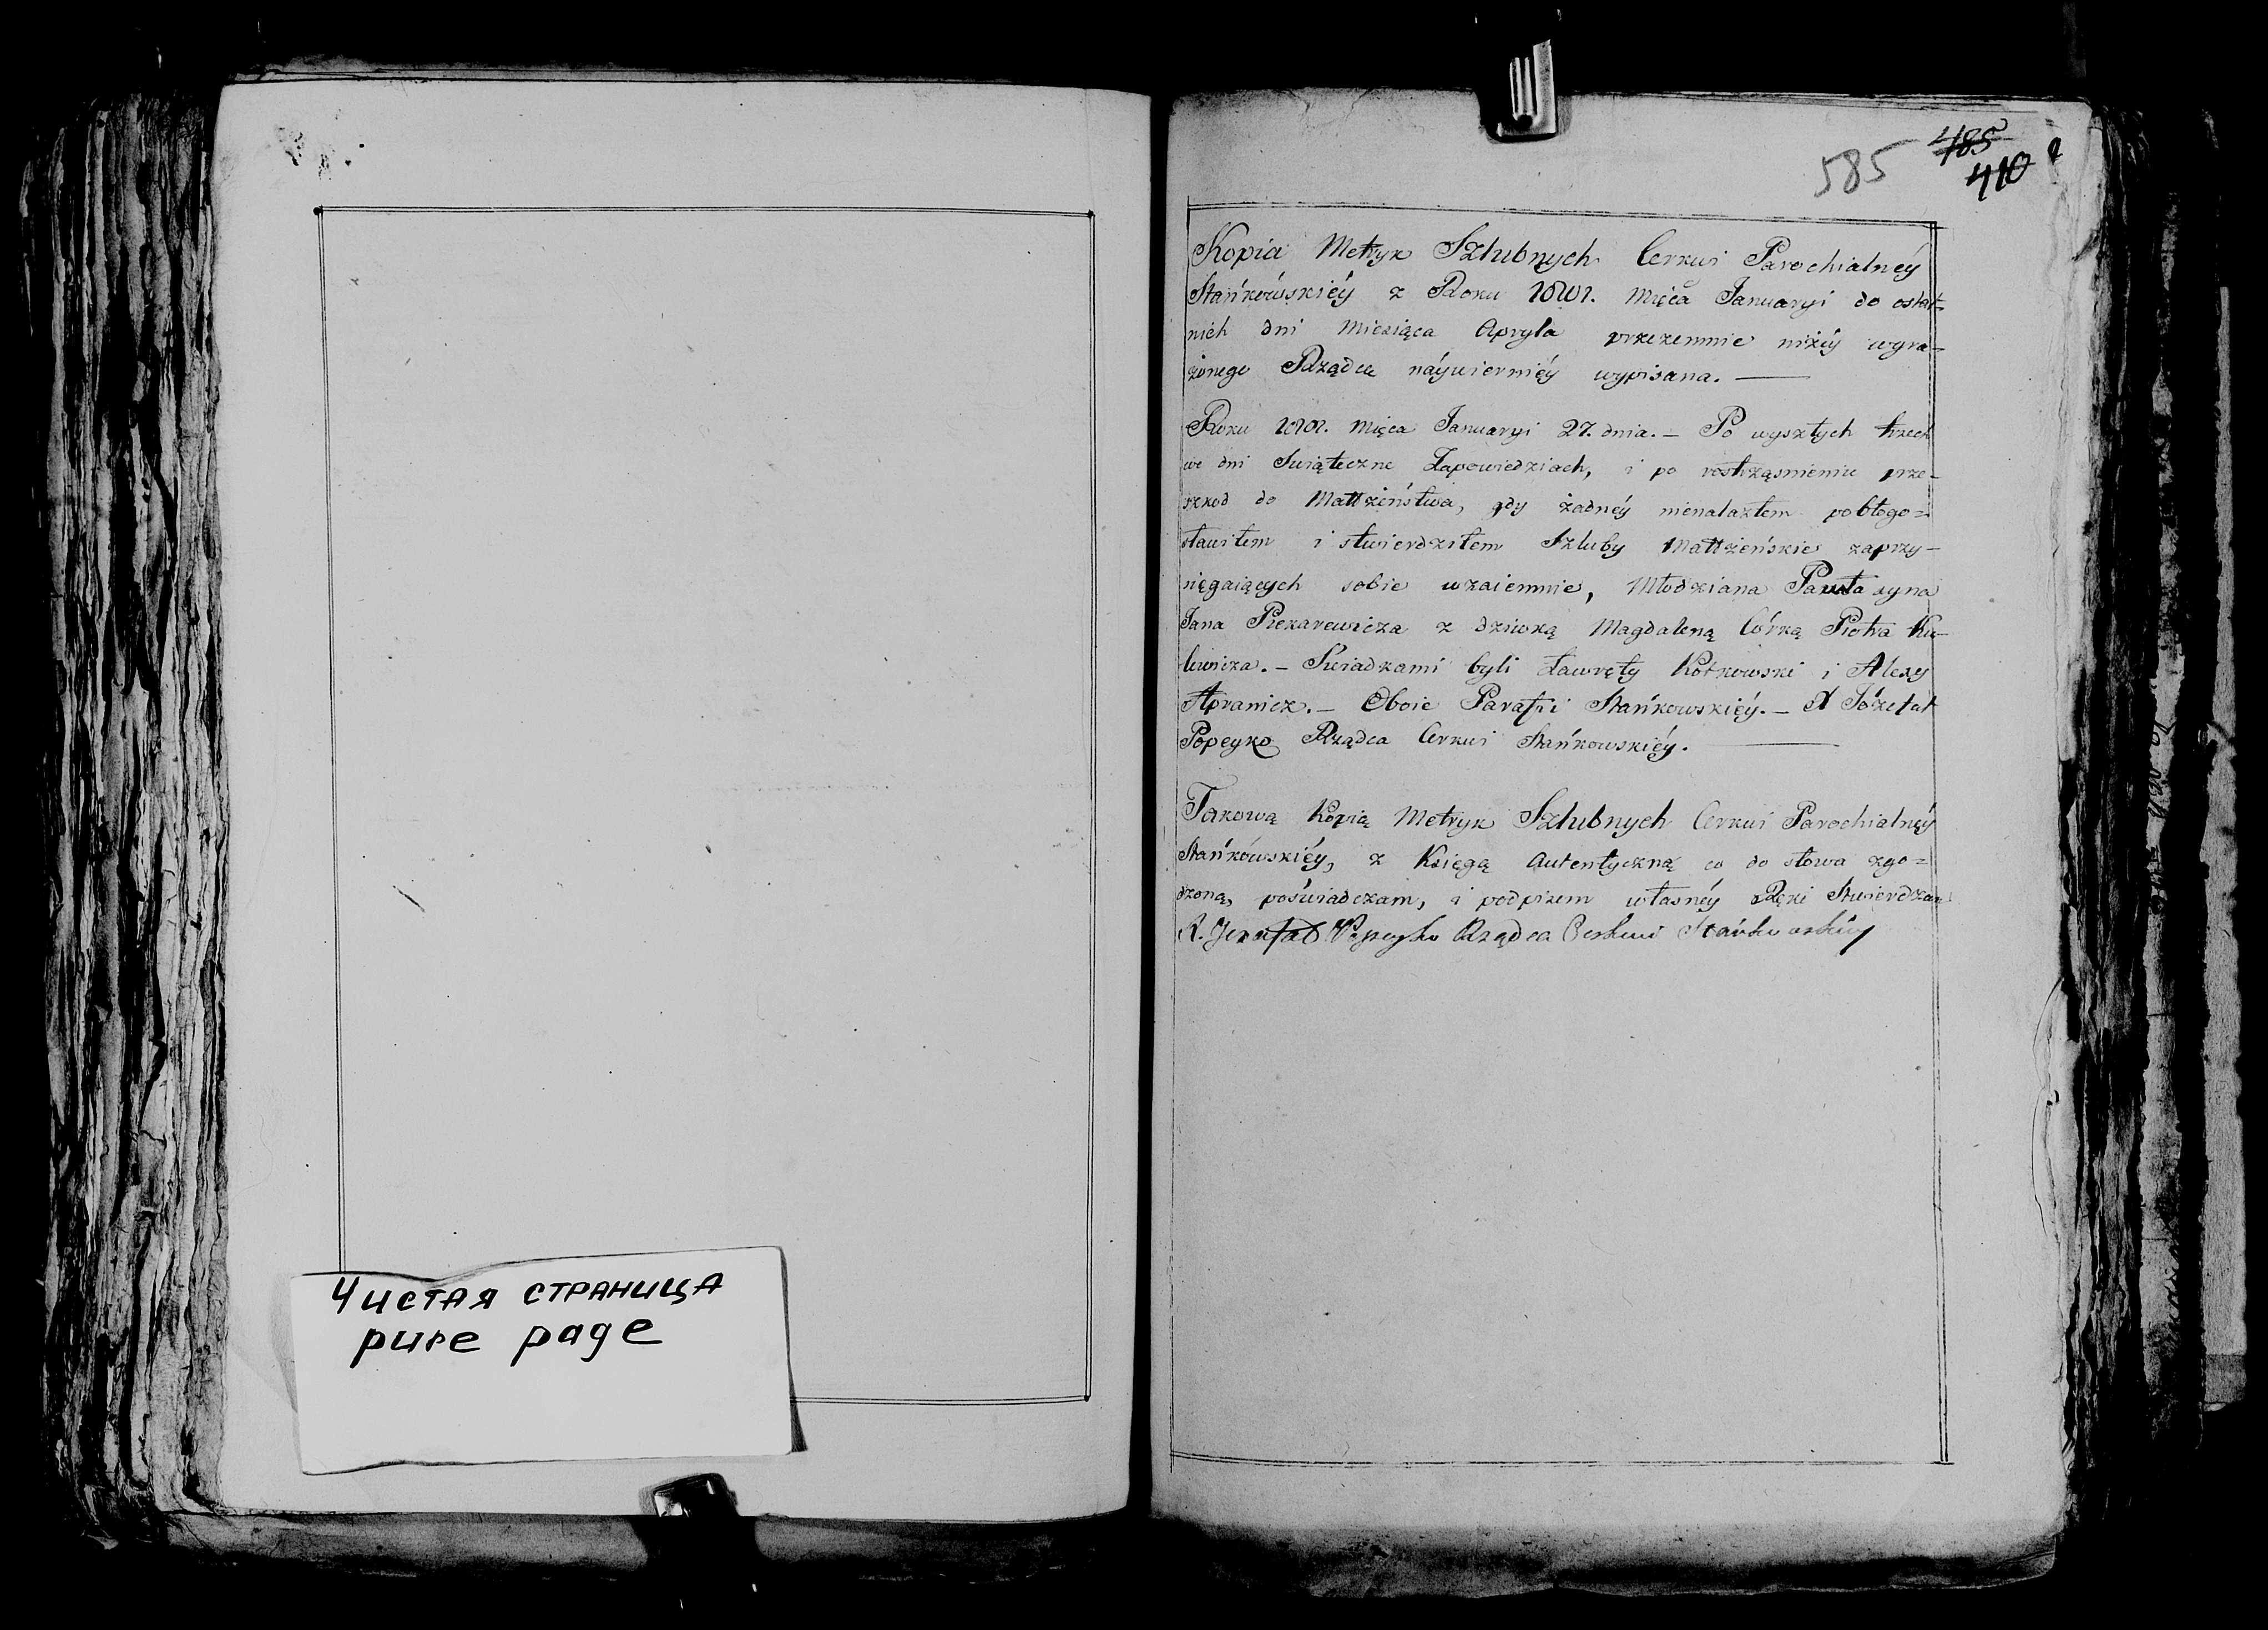 Чистая страница
pure page
585 485
410
Kopia Metryk Szlubnych Cerkwi Parochialnéy
Stańkowskiéy z Roku Mięca Januaryi do ostat-
nich dni Miesiąca Apryla przezemnie niżéy wyra-
żonego Rządcę náywierniéy wypisana. —
Roku Mięca Januaryi 27. dnia. — Po wyszłych trzech
we dni Swiąteczne Zapowiedziach, i po roztrząsnieniu prze-
szkod do Małłżeństwa, gdy żadnéy nienalazłem pobłogo=
sławiłem i stwierdziłem Szluby Małłżeńskie zaprzy-
sięgaiących sobie wzaiemnie, Młodziana Pawła syna
Jana Piekarewicza z dziwką Magdaleną Córką Piotra Ku-
lewicza. — Świadkami byli Ławręty Kotkowski i Alexy
Apranicz. — Oboie Parafii Stańkowskiéy. — X Józefat
Popeyko Rządca Cerkwi Stańkowskiéy. —
Takową Kopią Metryk Szlubnych Cerkwi Parochialnéy
Stańkówskiéy, z Księgą Autentyczną co do słowa zgo=
dzoną, poświadczam, i podpisem własnéy Ręki Stwierdzam
X. Jozafat Popeyko Rządca Cerkwi Stańkowskiey